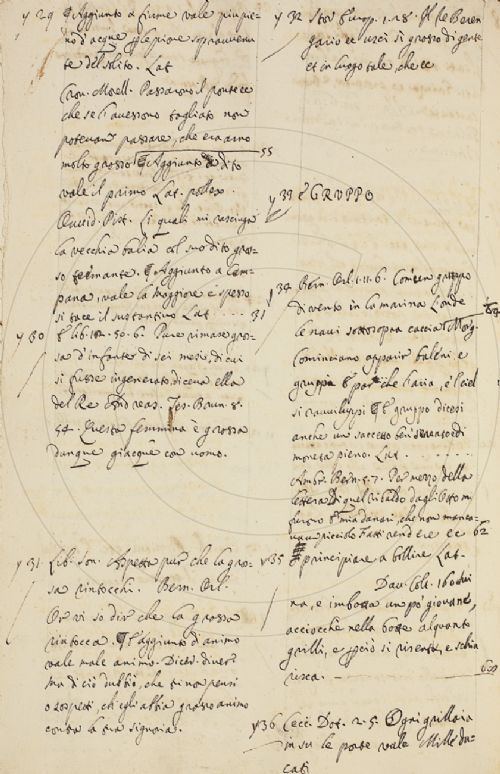 y 29 ¶ Aggiunto a fiume vale più pie-
no d'acque per pione sopravvenu
te del solito. Lat
Cron. Morell. Passarono il ponte ec
che se l'avessono tagliato non
potevano passare, che era arno
molto grosso ¶ Aggiunto a dito 55
vale il primo Lat. pollex.
Ovvid. Pist. li quali mi rasciuga
la vecchia balia col suo dito gros-
so tremante. ¶ Aggiunto a Cam-
pana, vale la maggiore e spesso
si tace il sustantivo Lat . . . . 31
y 30 50. 6. Pure rimase gros-
sa d'infante di sei mesi, di cui
si fusse ingenerato diceva ella
del Re Andreas. Tes. Brun. 8.
54. Questa femmina è grossa
dunque giacque con uomo.
y 31 Lib. Son. Aspetta pur che la gros-
sa rintocchi. Bern. Orl.
Or vi so dir che la grossa
rintocca. ¶ Aggiunto d'animo
vale male animo.
ma di ciò dubbio, che tu non pensi
o sospetti, ch'egli abbia grosso animo
contra la tua signoria.
y 32 Stor. Europ. 1. 18. Il Re Beren
gario ec uscì sì grosso di gente
et in luogo tale, che ec
y 33 è GRUPPO
y 34 Bern. Orl. 1. 11. 6. Com'un gruppo
di vento in la marina L'onde
le navi sottosopra caccia Morg.
Cominciano apparir baleni e
gruppi E par che l'aria, e 'l ciel
si ravviluppi ¶ E gruppo dicesi
anche un sacchetto ben serrato di
moneta pieno. Lat. . . . . .
Ambr. Bern. 5. 7. Per mezzo della
lettera di quel Ubaldo dagli Otto mi
furono mia danari, che non manca-
va un picciolo Fatti rendere ec 62
y 35 principiare a bollire Lat.
Dav. Colt. 160
na, e imbotta un po' giovane,
acciocchè nella botte alquanto
grilli, e perciò si risenta, e schia
risca. —
y 36 Cecc. Dot. 2. 5. Ogni grillaia
in su le poste vale Mille du-
cati